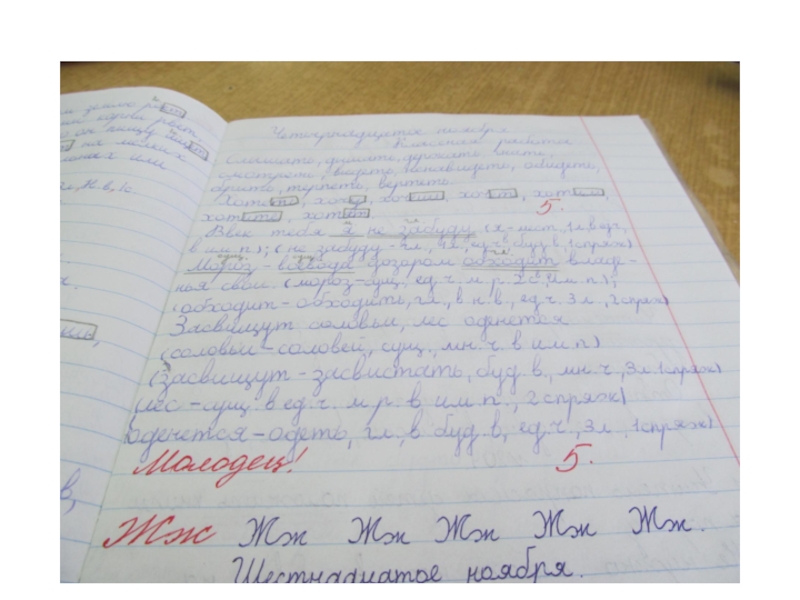 м землю р
Четырнадцатое ноября
Классная работа
Слышать, дышать, держать, гнать,
смотреть, видеть, ненавидеть, обидеть,
терпеть, вертеть.
Хотеть, хочу, хочешь, хочет, хотим,
хотите, хотят.
5.
Ввек тебя я не забуду (я-мест., 1л, ед.ч,
в им.п); (не забуду-гл., 1л, ед.ч, буд.в, 1спряж)
сущ. гл.
Мороз-воевода дозором обходит владе-
ния свои. (мороз-сущ, ед.ч. м.р. 2с. им.п.);
(обходит-обходить, гл., в н.в., ед.ч. 3л, 2спряж)
Засвищут соловьи, лес оденется
(соловьи-соловей, сущ., мн.ч. в им.п)
(засвищут-засвистать, буд.в., мн.ч, 3л.1спряж)
(лес-сущ. в ед.ч. м.р. в им.п., 2спряж)
оденется-одеть, гл., в буд.в, ед.ч., 3л, 1спряж)
Молодец! 5.
Жж Жж Жж Жж Жж Жж.
Шестнадцатое ноября.